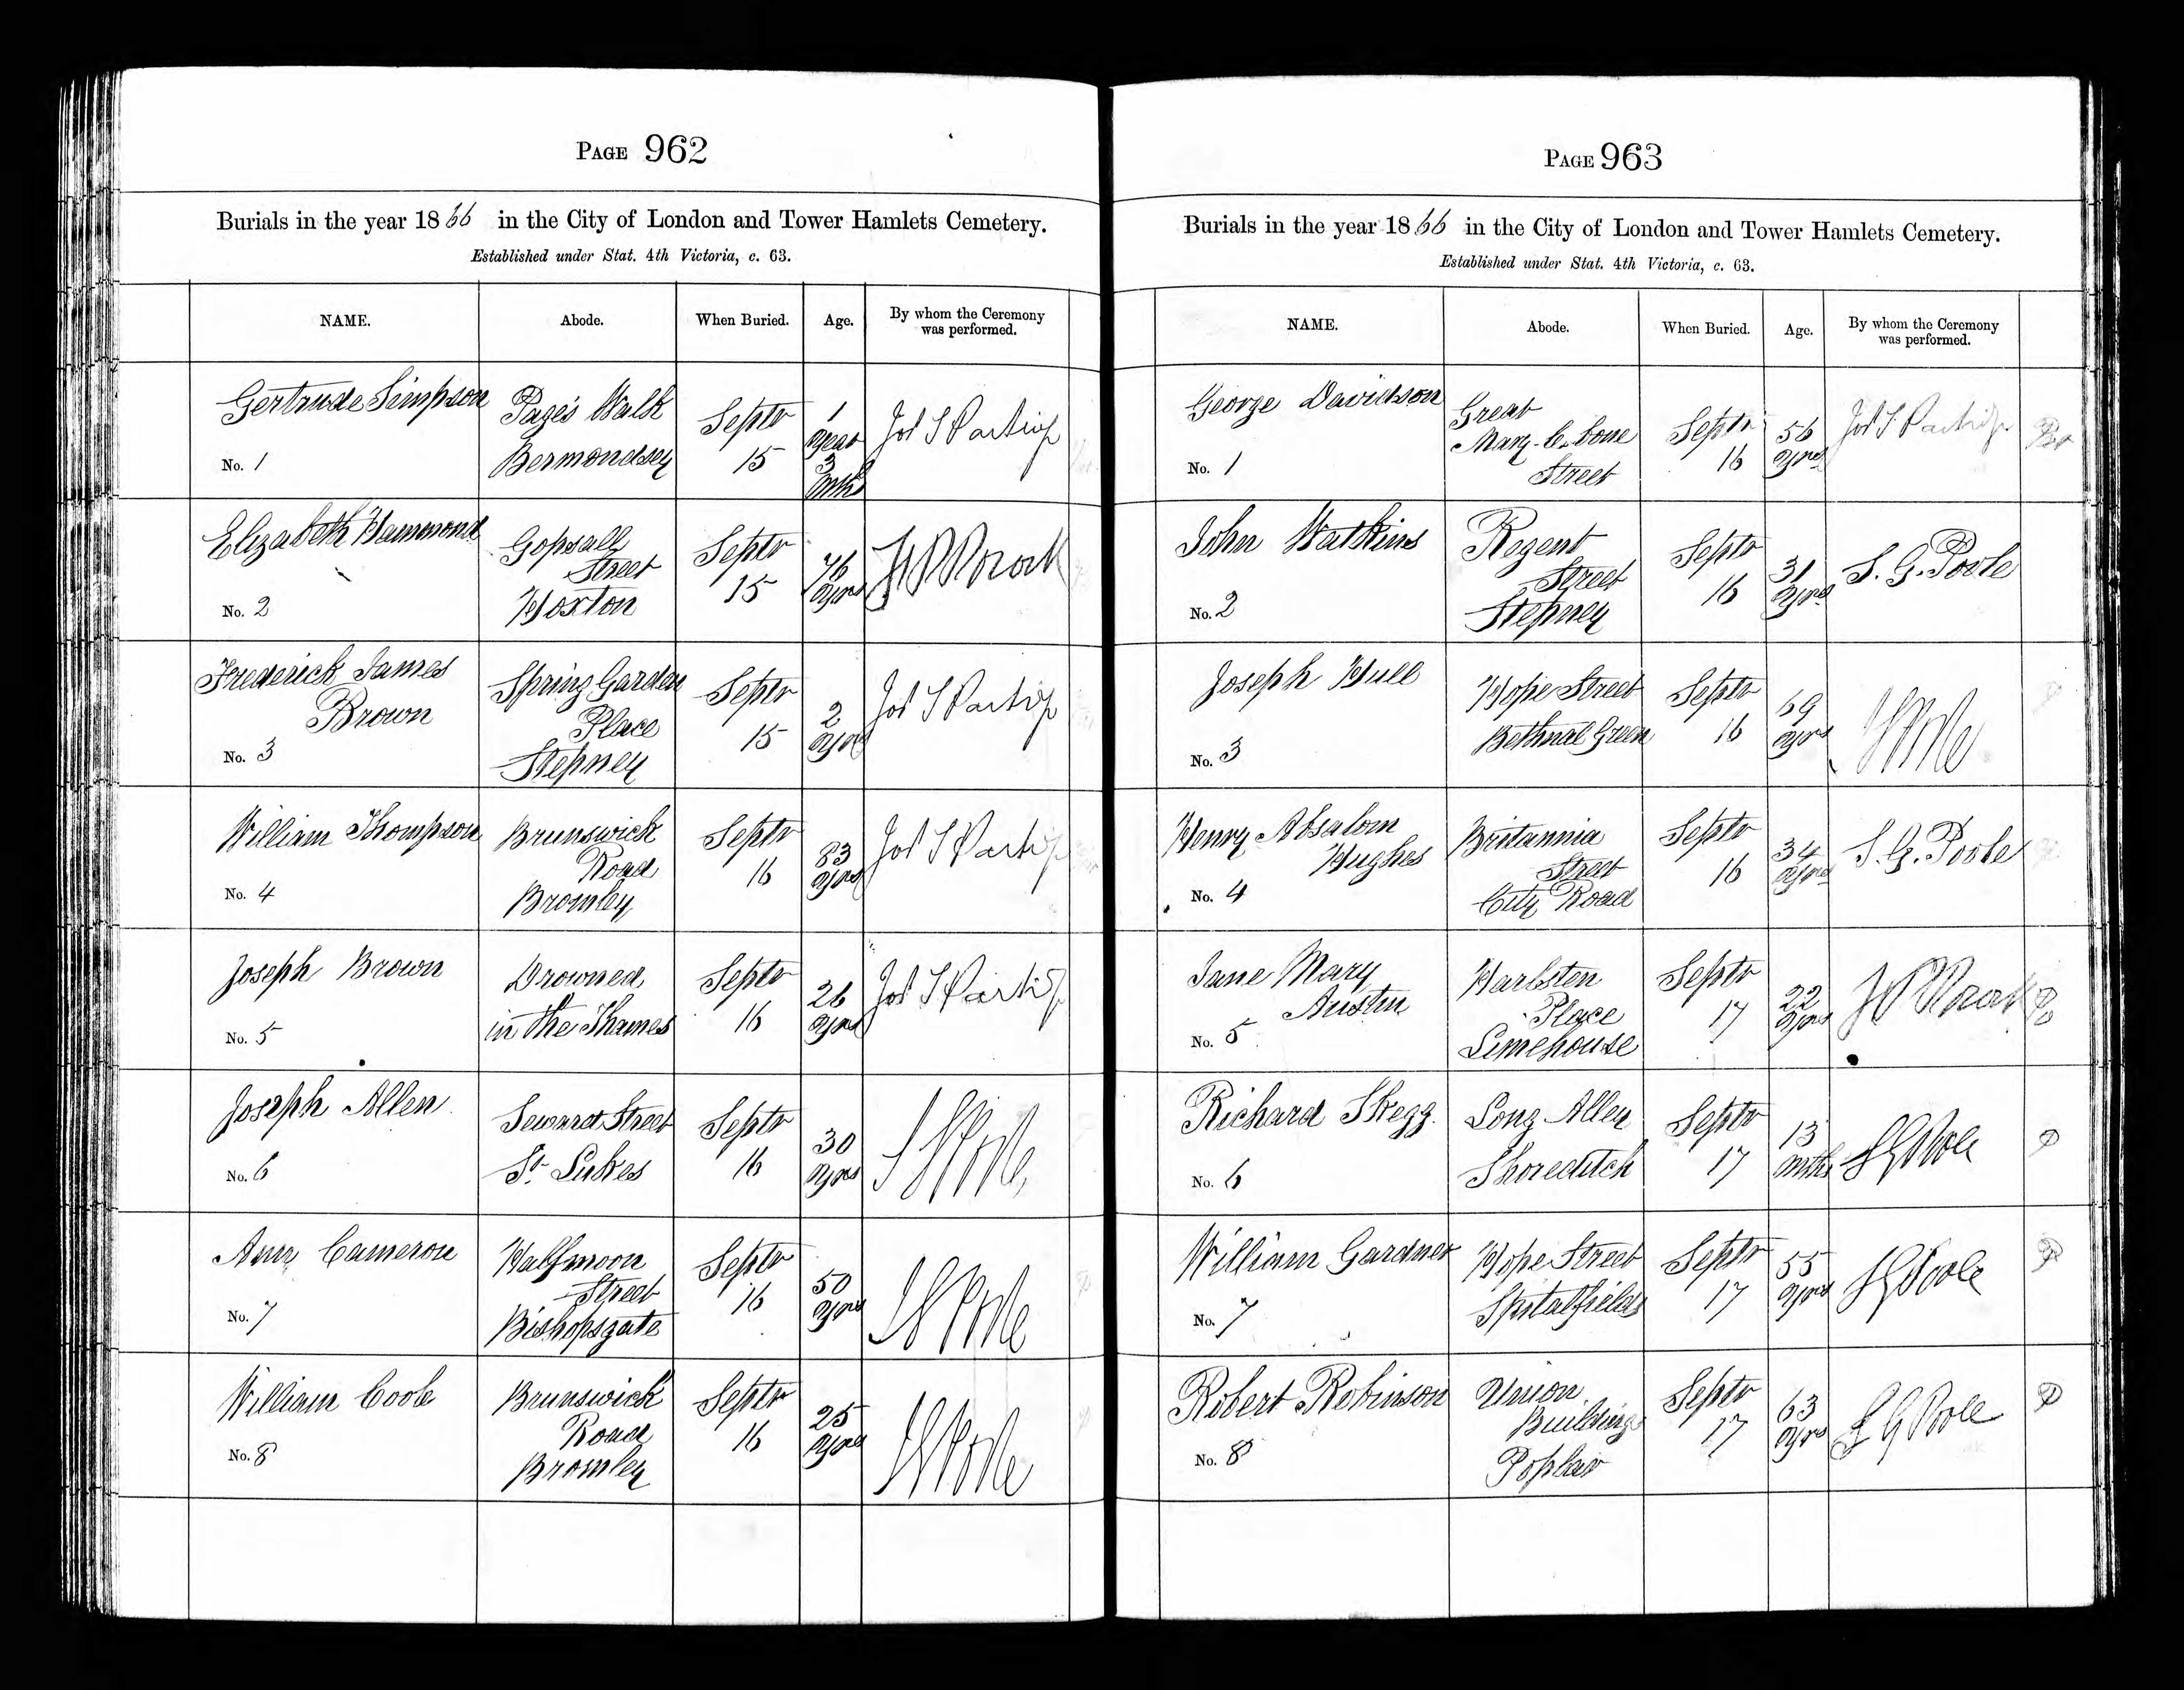 PAGE 962
Burials in the year 1866 in the City of London and Tower Hamlets Cemetery.
Established under Stat. 4th Victoria, c. 63.
NAME. Abode. When Buried. Age. By whom the Ceremony was performed.
Gertrude Simpson
No. 1
Page's Walk
Bermondsey
Septr
15
1
Year
3
Mths
Elizabeth Hammond
No. 2
Gopsall
Street
Hoxton
Septr
15
76
Yrs
Frederick James
Brown
No. 3
Spring Garden
Place
Stepney
Septr
15
2
Yrs
William Thompson
No. 4
Brunswick
Road
Bromley
Septr
16
83
Yrs
Joseph Brown
No. 5
Drowned
in the Thames
Septr
16
26
Yrs
Joseph Allen
No. 6
Seward Street
St. Lukes
Septr
16
30
Yrs
Ann Cameron
No. 7
Halfmoon
Street
Bishopsgate
Septr
16
50
Yrs
William Coole
No. 8
Brunswick
Road
Bromley
Septr
16
25
Yrs
PAGE 963
Burials in the year 1866 in the City of London and Tower Hamlets Cemetery.
Established under Stat. 4th Victoria, c. 63.
NAME. Abode. When Buried. Age. By whom the Ceremony was performed.
George Davidson
No. 1
Great
Mary-le-bone
Street
Septr
16
56
Yrs
John Watkins
No. 2
Regent
Street
Stepney
Septr
16
31
Yrs
S. G. Poole
Joseph Hull
No. 3
Hope Street
Bethnal Green
Septr
16
69
Yrs
Henry Absalom
Hughes
No. 4
Britannia
Street
City Road
Septr
16
34
Yrs
S. G. Poole
Jane Mary
Austin
No. 5
Place
Limehouse
Septr
17
22
Yrs
Richard Skegg.
No. 6
Long Alley
Shoreditch
Septr
17
13
Mths
S G Poole
William Gardner
No. 7
Hope Street
Spitalfields
Septr
17
55
Yrs
S G Poole
Robert Robinson
No. 8
Union
Buildings
Poplar
Septr
17
63
Yrs
S G Poole